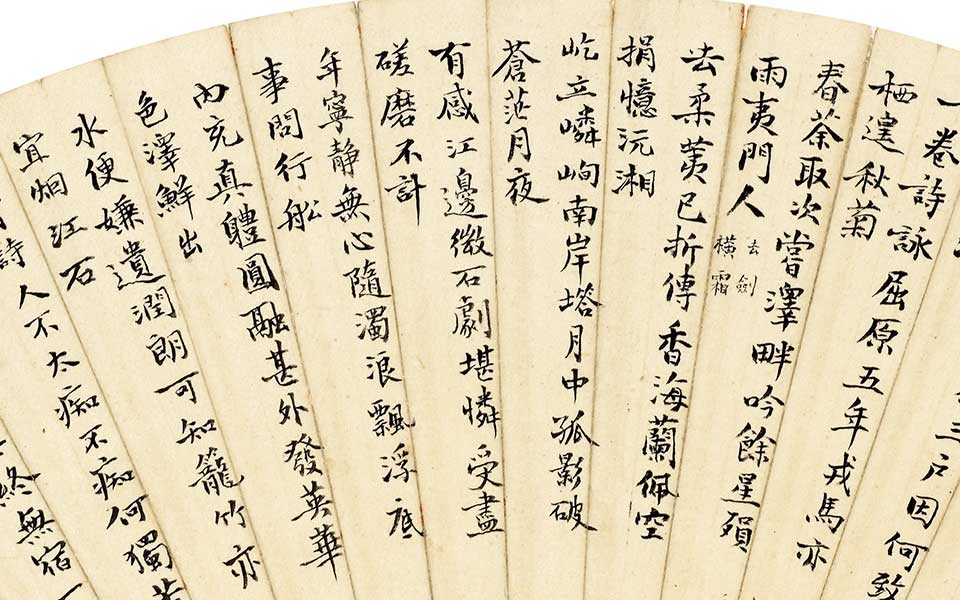 三戶因何致
一卷詩詠屈原五年戎馬亦
栖遑秋菊
春荼取次嘗澤畔吟餘星殞
雨夷門人去劍橫霜
去柔荑已折傳香海蘭佩空
捐憶沅湘
屹立嶙峋南岸塔月中孤影破
蒼茫月夜
有感江邊微石劇堪憐受盡
磋磨不計
年寧靜無心隨濁浪飄浮底
事問行舩
內充真體圓融甚外發英華
色澤鮮出
水便嫌遺潤朗可知籠竹亦
宜烟江石
詩人不太痴不痴何獨苦
終無宿一